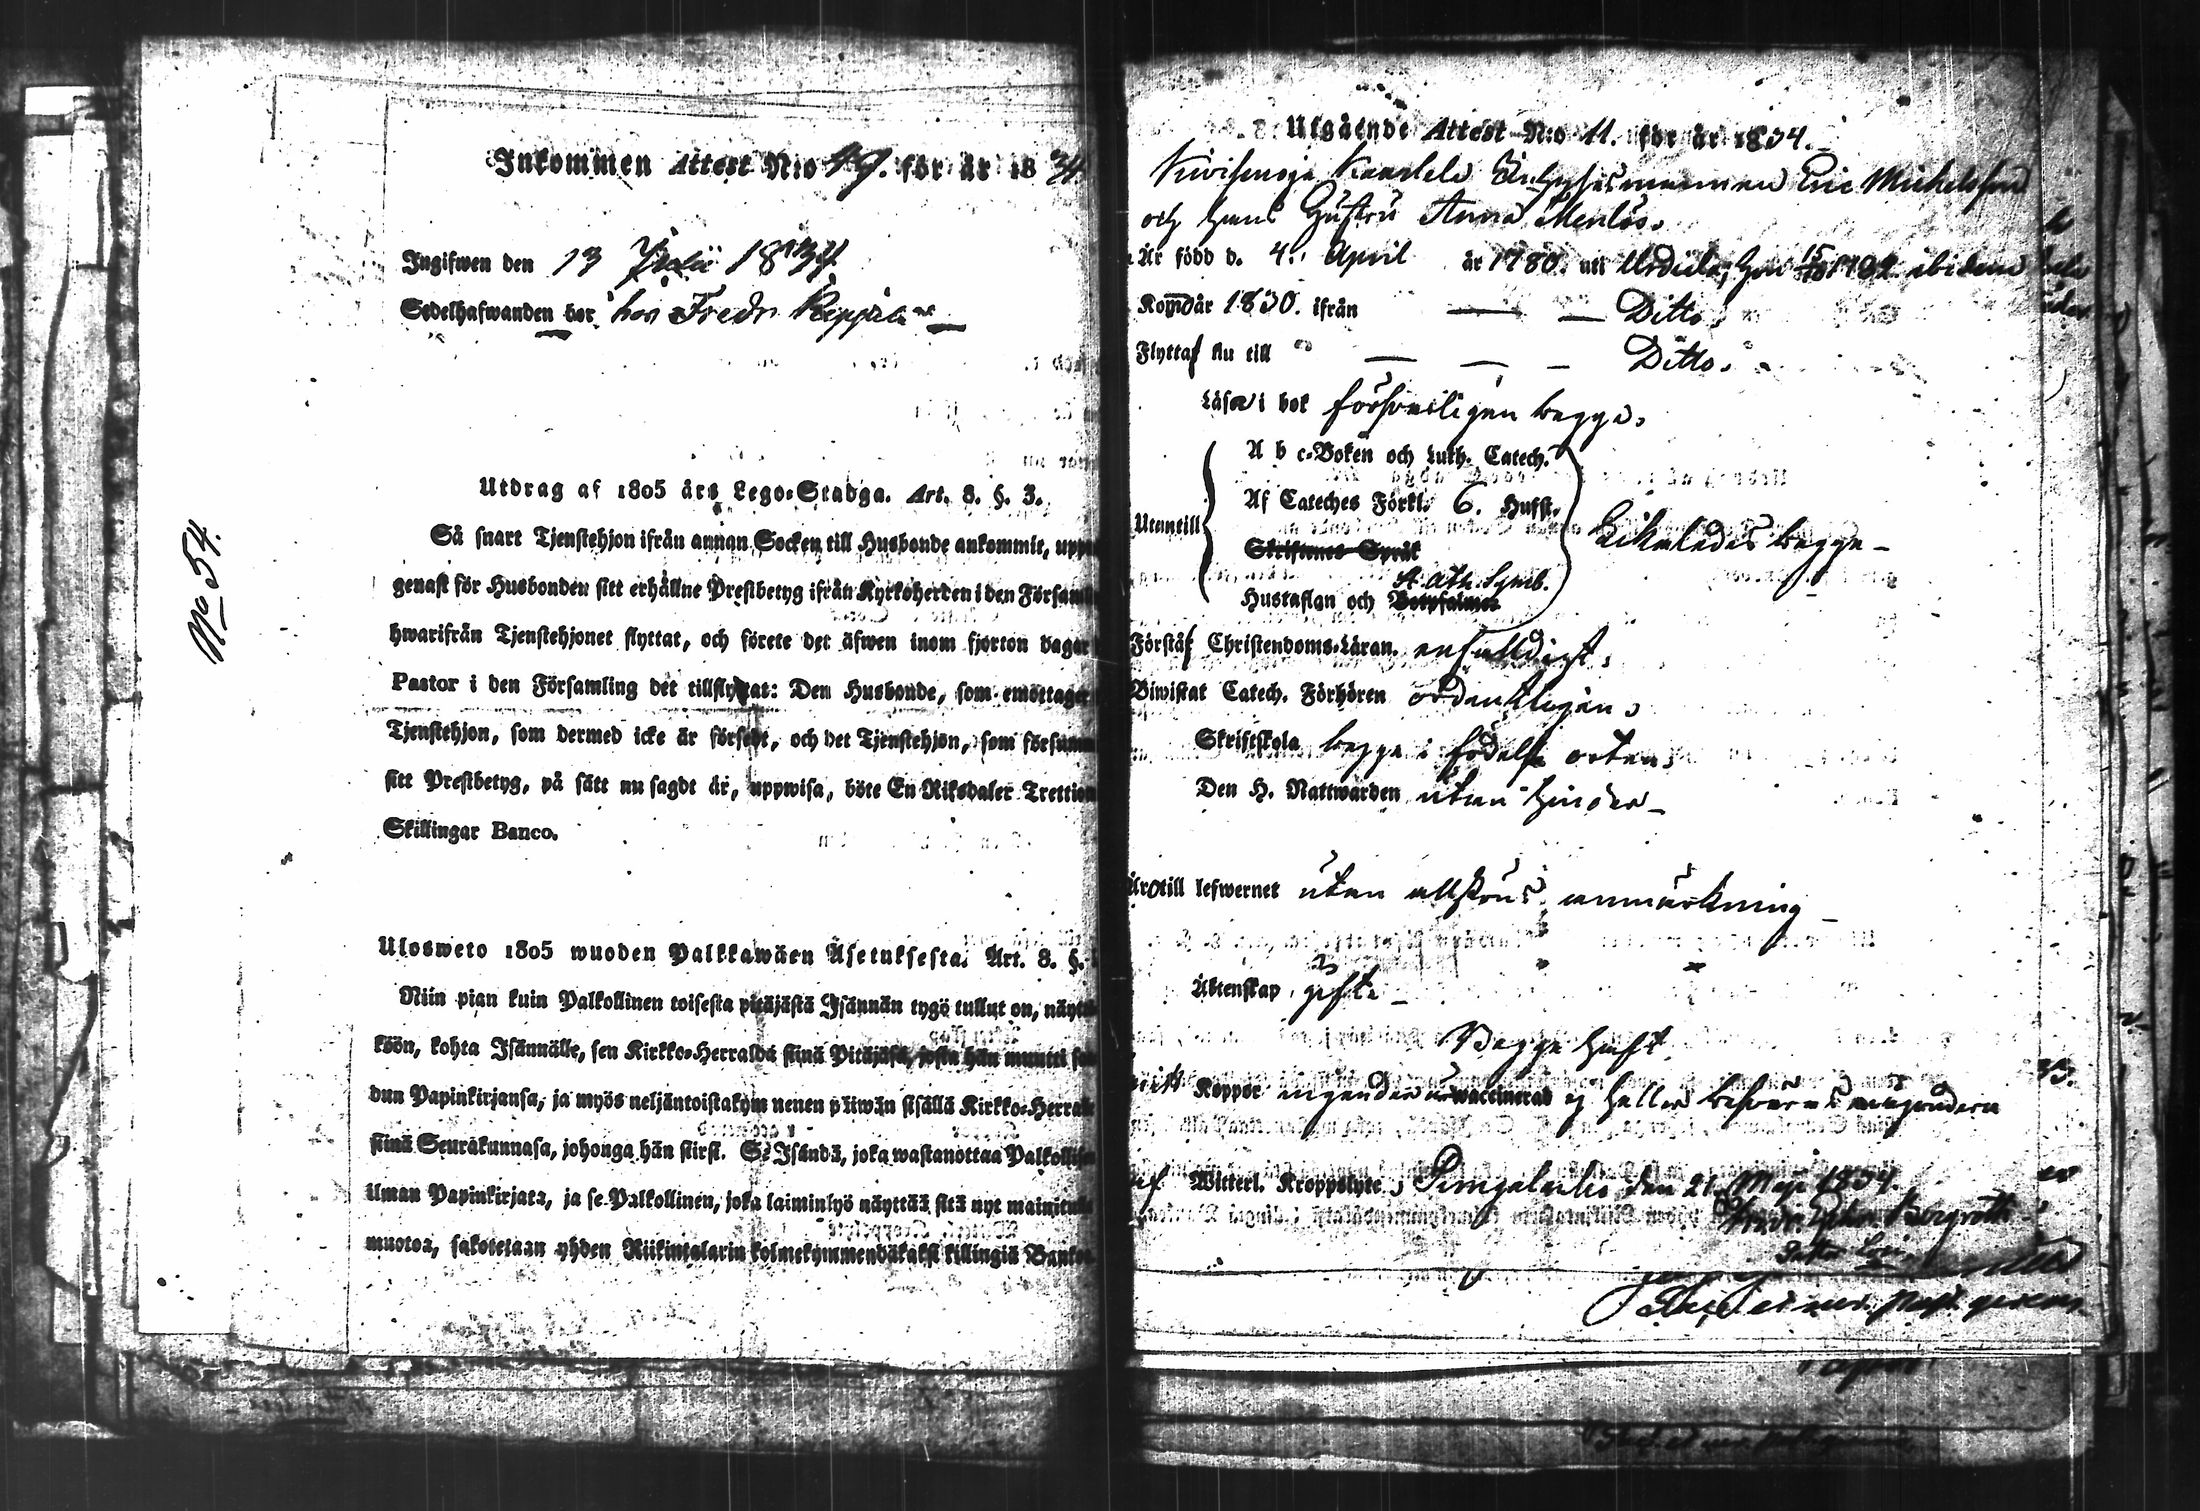 Inkommen Attest N:o 49. för år 1834
Ingifwen den 13 Julii 1834
Sedelhafwanden bor hos Fredr
No 54.
Utdrag af 1805 års Lego-Stadga. Art. 8. §. 3.
Så snart Tjenstehjon ifrån annan Socken till Husbonde ankommit, uppte
genast för Husbonden sitt erhållne Prestbetyg ifrån Kyrkoherden i den Församl
hwarifrån Tjenstehjonet flyttat, och förete det äfwen inom fjorton dagar
Pastor i den Församling det tillflyttat: Den Husbonde, som emottager
Tjenstehjon, som dermed icke är försedt, och det Tjenstehjon, som försumm
sitt Prestbetyg, på sätt nu sagdt är, uppwisa, böte En Riksdaler Trettion
Skillingar Banco.
Ulosweto 1805 wuoden Palkkawäen Asetuksesta. Art. 8. §.
Niin pian kuin Palkollinen toisesta pitäjästä Isännän tygö tullut on, näyt
köön, kohta Isännälle, sen Kirkko-Herralda siinä Pitäjäsä, josta hän muutti
dun Papinkirjansa, ja myös neljäntoistakym nenen päiwän sisällä Kirkko-Herra
siinä Seurakunnasa, johonga hän siirst. Se Isändä, joka wastanottaa Palkollisen
ilman Papinkirjata, ja se Palkollinen, joka laiminlyö näyttää sitä nyt mainitulla
muotoa, sakotetaan yhden Riikintalarin kolmekymmendäkaksi killingiä Banko
Utgående Attest N:o 11. för år 1834.
Eric Michelsson
och hans Hustru Anna
Är född d. 4. April år 1780. uti Urdiala; hon 15/10 1782 ibidem
Kom år 1830. ifrån — — Ditto.
Flyttaf nu till — — — Ditto.
Läser i bok försvarligen begge.
Utantill
A b c-Boken och Luth. Catech.
Af Cateches Förkl. 6. Hufst.
Skriftenes Språk
A. Ath. Symb.
Hustaflan och Botpsalmer
Likaledes begge
Förstår Christendoms-Läran. enfalldigt.
Biwistat Catech. Förhören ordentligen.
Skriftskola begge i födelse orten.
Den H. Nattwarden utan hinder
Äro till lefwernet utan allskons anmärkning
Äktenskap gifte
Begge haft
Koppor ingendera waccinerad ej heller
af Witterl. Kroppslyte, den 21. Maji 1834.
Bergroth